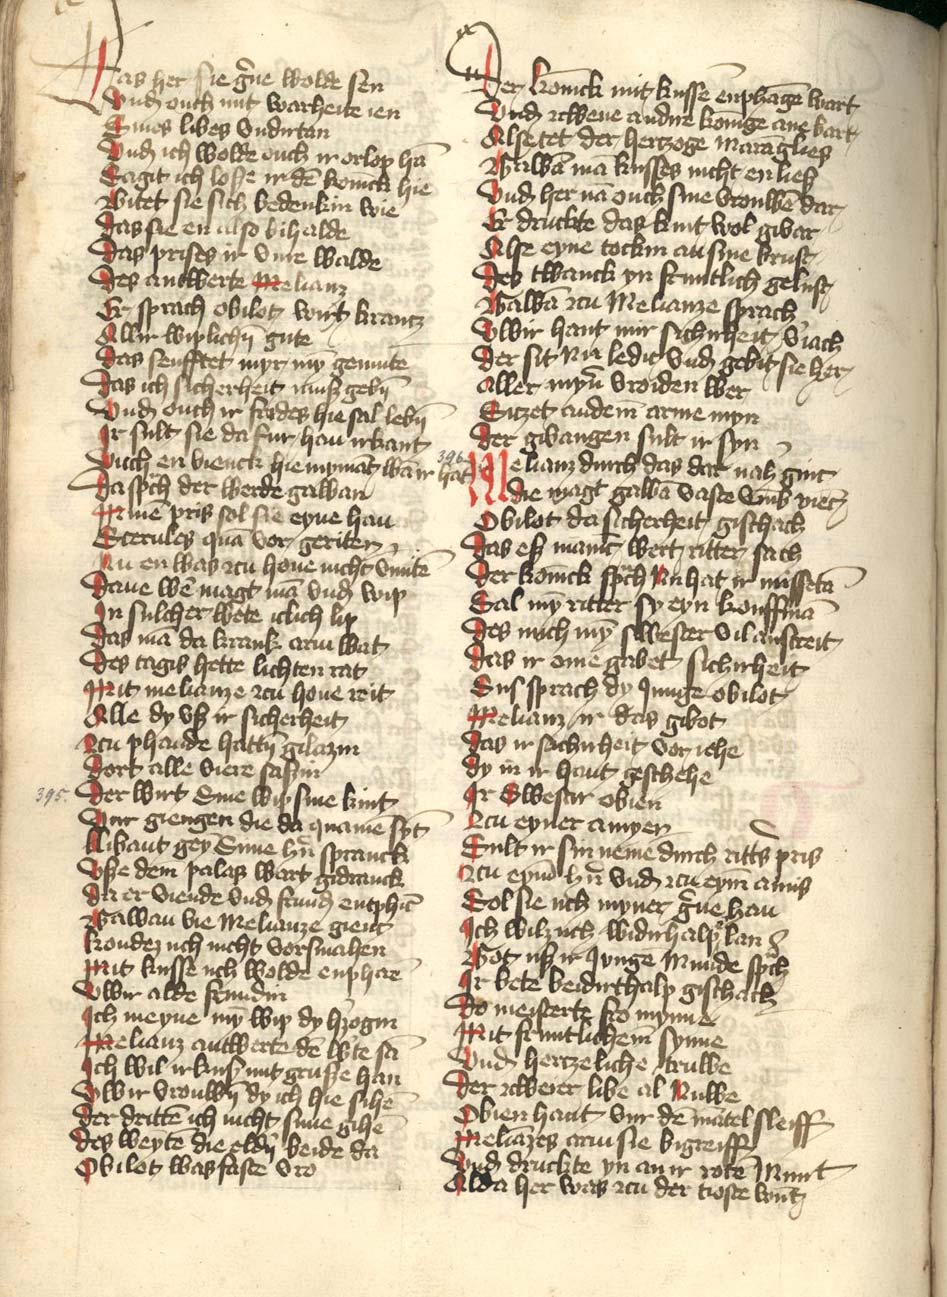 Das her sie g̃ne wolde sen
Vnd ouch mit warheite ien
Sines libes vndirtan
Vnd ich wolde ouch ir orlop hā
Sagit ich losse ir dē konīck hie
Bitet sie sich bedenkin wie
Das sie en also bihalde
Das prises ir vnre walde
Des antwerte Melianz
Er sprach obilot wirt krantz
Allir wiplichī gute
Das senfftet myr mȳ gemute
Das ich sicherheit muß gebī
Vnd ouch ir frides hie sal lebī
Ir sult sie da fur hau irkant
Vuch en vienck hie nymāt wan ir hāt
Da spͨch der werde gawan
Mime pris sol sie eyne hau
Scerules qua vor geriten
Nu en was zcu houe nicht vmitē
Dane wē magt mā vnd wip
In sulcher wete iclich lip
Das mā da krank arm wat
Des tagis hette lichten rat
Mit melianze zcu houe reit
Alle dy vß ir sicherheit
Zcu phande hattī gilazin
Dort alle viere saßin
395.
Der wirt Sine wip sine kint
Vnr giengen die da quamē sȳt
Libaut gey Sime hr̄n spranck
Vffe dem palas wart gidranck
Da er viende vnd frund entphīc
Gawan bie Melianze gienc
Kondez uch nicht vorsmahen
Mit kusse uch wolde enphaē
Vwir alde frundin
Ich meyne mȳ wip dy hʼzogin
Melianz antwerte dē wʼte sā
Ich wil ir kuß mit grusse han
Vwir vrouwī dy ich hie sihē
Der drittē ich nicht sune gihē
Des weyte die eldn̄ beide da
Obilot was faste vro
Der konīck mit kusse ēnphagē wart
Vnd zcwene andire konige ane bart
Alse tet der hertzoge Maranglies
Gawā mā kusses nicht en liess
Vnd her nā ouch sine vrouwē dar
Er druckte das kint wol givar
Alse eyne tockin an sine brust
Des twanck yn frintlich gelust
Gawā zcu Melianze sprach
Vwir hant mir sichirheit v'iach
Der sit nu ledic vnd gebit sie her
Aller mynʼ vroiden wer
Sitzet an dem arme myn
Der givangen sult ir syn
396.
Melianz durch das dar nah ginc
die magt gawā vaste vmb vienc
Obilot da sicherheit gischach
Das eß manic wert ritter sach
Der konīck spͨch Nu hat ir missetā
Sal mȳ ritter sy eyn kouffmā
Des mich mȳ swester vil anstreit
Das ir eme gabet sichirheit
Sus sprach dy Junge obilot
Melianz ir das gibot
Das ir sichirheit vor iehe
Dy in ir hant geschehe
Ir Swestir obien
Zcu eyner amyen
Sult ir sin neme durch ritt's pris
Zcu eynē hr̄n vnd zcu eynē amis
Sol sie uch ymmer g̃ne hau
Ich wilz uch widirhalp lan
Got uß ir Junge Munde spͨch
Ir bete beidirthalp gischach
Do meisterte fro mynne
Mit frintlichem synne
Vnd hertzeliche truwe
Der zcweier libe al Nuwe
Obien hant vnr dē mātel sleiff
Melianzes arm sie bigreiff
Vnd druckte yn an ir rotē Munt
Alda her was zcu der tioste wūt